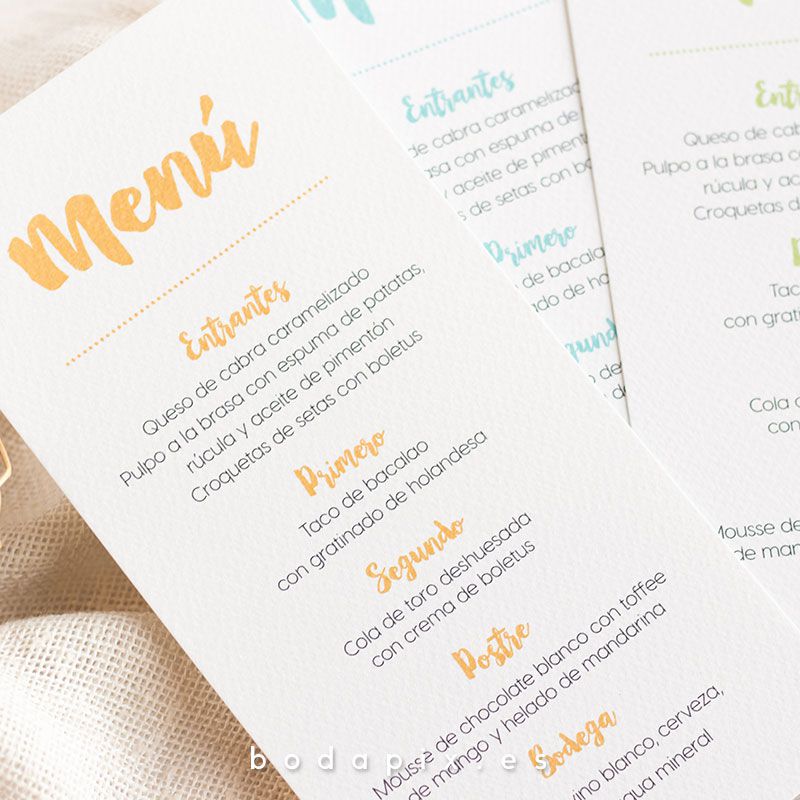 Menú
Entrantes
Queso de cabra caramelizado
Pulpo a la brasa con espuma de patatas,
rúcula y aceite de pimentón
Croquetas de setas con boletus
Primero
Taco de bacalao
con gratinado de holandesa
Segundo
Cola de toro deshuesada
con crema de boletus
Postre
Mousse de chocolate blanco con toffee
de mango y helado de mandarina
Bodega
vino blanco, cerveza,
agua mineral
Entrantes
de cabra caramelizado
brasa con espuma de
y aceite de pimentón
de setas con bol
Primero
de bacala
do de ho
gund
de
Ent
Queso de cab
Pulpo a la brasa co
rúcula y a
Croquetas de s
Tac
con grati
Cola d
con
Mousse de
de man
bodapix.es